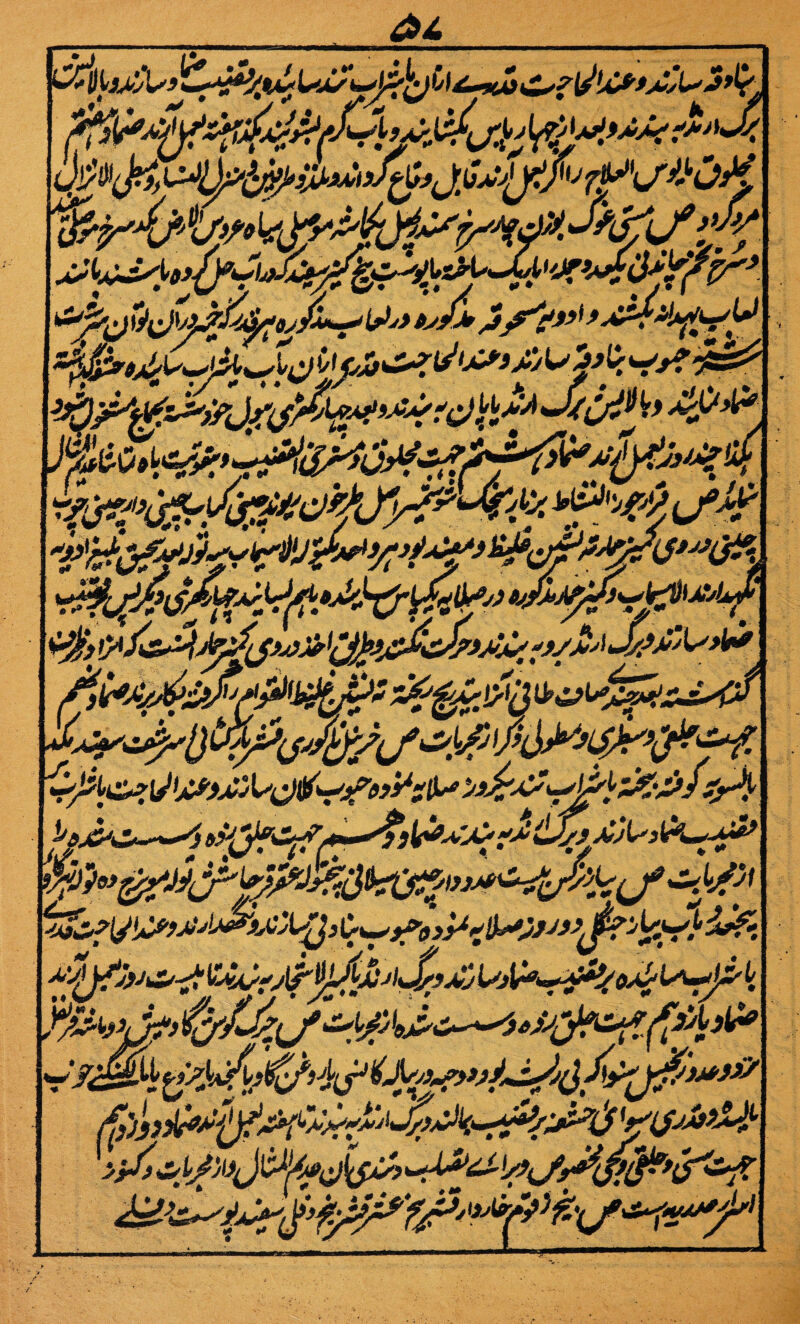 ۵۷
بنادقه سازند و عند الحاجت قدرے ازان بشراب تند سائیده بر قضیب ضماد سازند و بالایش
برگ ارنڈ به بندند و بعد از چهار پاس بکشایند و بآب گرم بشویند هکذا هفته بعمل آرند ضماد هفتم
مجلوق مایوس العلاج را اگر بعمل آرند قابل وقاع گرداند و ملذذ طرفین و منزل النساء و مبطی الانزال
مرد گردد ص مستی غوک بوزن چار سرخ سمندر پهل یکماشه موصلی سیاه عروس الارض یکد سرخ موصلی سفید
دسرخ تخم چاندنی یکعدد جمله را باریک ساخته با پوست بیخ کنیر سفید که در آب حل کرده باشند مانند
لعاب بهدانه بکشند و ادویه مسحوقه مذکوره در لعاب مذکوره بهر قدر که خمیر در آن توان سرشت
سرشته حبوب بنادقه سازند و عند الحاجت قدری ازان بآب یا شراب سائیده حشفه گذاشته
ضماد نمایند و بالایش برگ ارنڈ یا پان به بندند و بعد چهار گهڑی ببول خود شسته بجماع مشغول شود
هکذا چند روز بعمل آرند ضماد هشتم جهت مجلوق و مسترخی القضیب و بتقویت باه تماشا عدیم المثال
نماید ص قرار جوز النشاط بزنار میخک اصل طرخون ریوند چینی کباب چینی دارچینی چوب
چینی دردی کمیز حمار ته نشین غلیظ و سفید بود هر واحد یکتوله الا سیماب سه توله بعد سحیق بلیغ ادویه
نگهدارند الا سیماب و کمیز حمار مذکوره در صلایه یکپاس سائیده باهم بسانید چهار گهڑی دیگر پس بر قضیب
ضماد سازند و برگ ارنڈ برو به بندند و حرکت نکنند و طریق اخذ دردی کمیز حمار آنست که آنرا در ظرف
گذاشته بعد چندے صاف طافی آنرا بتدریج ریخته ته نشین غلیظ القوام را گرفته بکار برند ضماد نهم
جهت جلقی و سطبری و مطولی ذکر از مجربات ص خربق ناگوری قشر باز کٹائی سرشف سفید یکد
بالسویه کوفته بیخته با شراب تند یکروز صلایه نموده حبوب کلان سازند و عند الحاجت بشراب بر
قضیب ضماد سازند و برگ ارنڈ به بندند ضماد دهم جهت جلق زده و سست شده را
از مجربات ص پیاز نرگس بیست عدد دارچینی سیلانی پنجتوله عقرقرحا شش توله مویزج ده توله
پنجعدد بآب پیاز جنگلی دو روز صلایه نموده حبوب بنادق سازند و نگهدارند و عند الحاجت قدرے
با شراب سائیده بر قضیب ضماد سازند و برگ ارنڈ یا کبیر الاشجار به بندند تا بیست روز بعمل آرند
ضماد یازدهم جهت جلق زده و سست شده از مجربات ص چرک گوش گاو میش دو ماشه قرنفل
دو عدد زنجبیل سنوا که بی ریشه بود دو حبه در پیاله کانسی با روغن گاو یا کنجد یا خروع یا خوب
مالیده و قدری سوائی حشفه بر قضیب بمالند و برگ ارنڈ به بندند تا هفته بعمل آرند ضماد دوازدهم
جهت سستی و جلقی و کجی مخصوص و برائے تصلب و تندی آن عدیم المثال و از مجربات و کنوز
اسرار صدریه است ص بیخ زقوم خاردار قشر بیخ عشر قشر بیخ دفلی سفید پوست دفلے